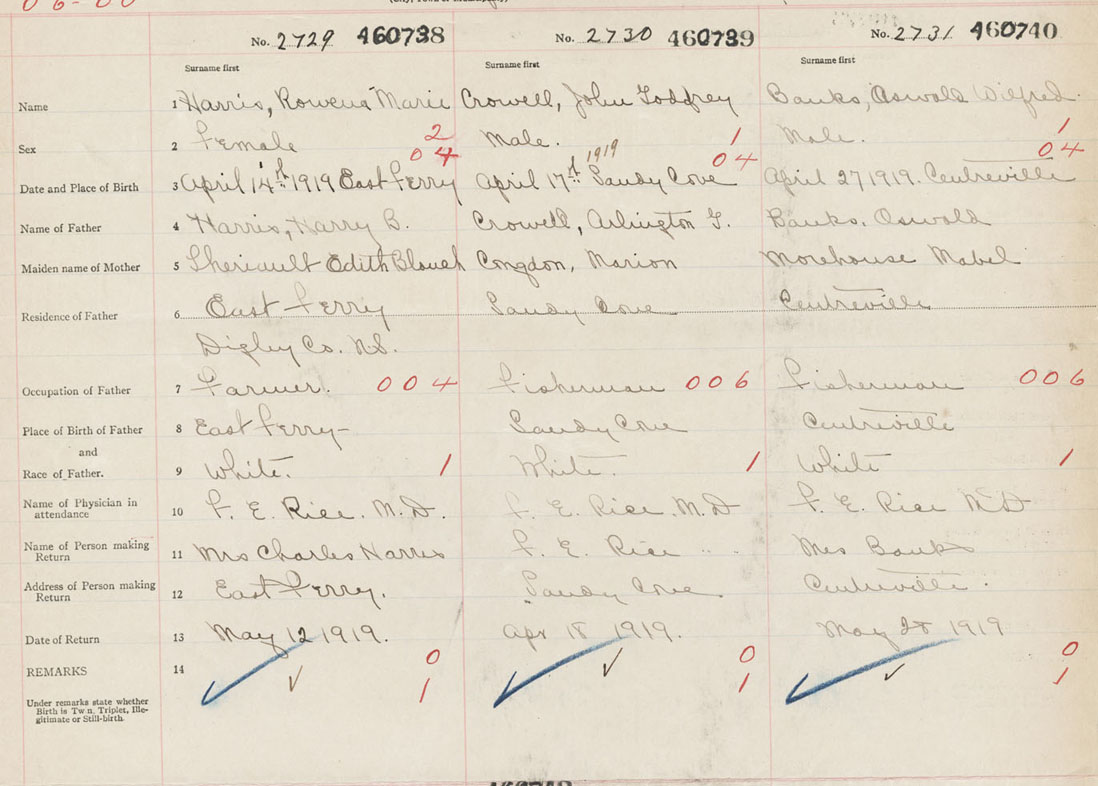 06-00
No. 2729 460738 No. 2730 460739 No. 2731 460740
Surname first Surname first Surname first
Name 1 Harris, Rowena Marie Crowell, John Godfrey Banks, Oswald Wilfred.
Sex 2 Female 2 Male. 1 Male. 1
04 1919 04 04
Date and Place of Birth 3 April 14th 1919 East Ferry April 17th Sandy Cove April 27 1919. Centreville
Name of Father 4 Harris, Harry B. Crowell, Arlington G. Banks, Oswald
Maiden name of Mother 5 Edith Congdon, Marion Morehouse Mabel
Residence of Father 6 East Ferry Sandy Cove Centreville
Digby Co. N.S.
Occupation of Father 7 Farmer. 004 Fisherman 006 Fisherman 006
Place of Birth of Father 8 East Ferry- Sandy Cove Centreville
and
Race of Father. 9 White. 1 White. 1 White 1
Name of Physician in
attendance 10 F. E. Rice. M.D. F. E. Rice. M.D F. E. Rice MD
Name of Person making
Return 11 Mrs Charles Harris F. E. Rice Mrs Banks
Address of Person making
Return 12 East Ferry. Sandy Cove. Centreville.
Date of Return 13 May 12 1919. Apr 18 1919. May 28 1919
REMARKS 14 ✓ ✓ 0 ✓ ✓ 0 ✓ ✓ 0
1 1 1
Under remarks state whether
Birth is Twin, Triplet, Ille-
gitimate or Still-birth.